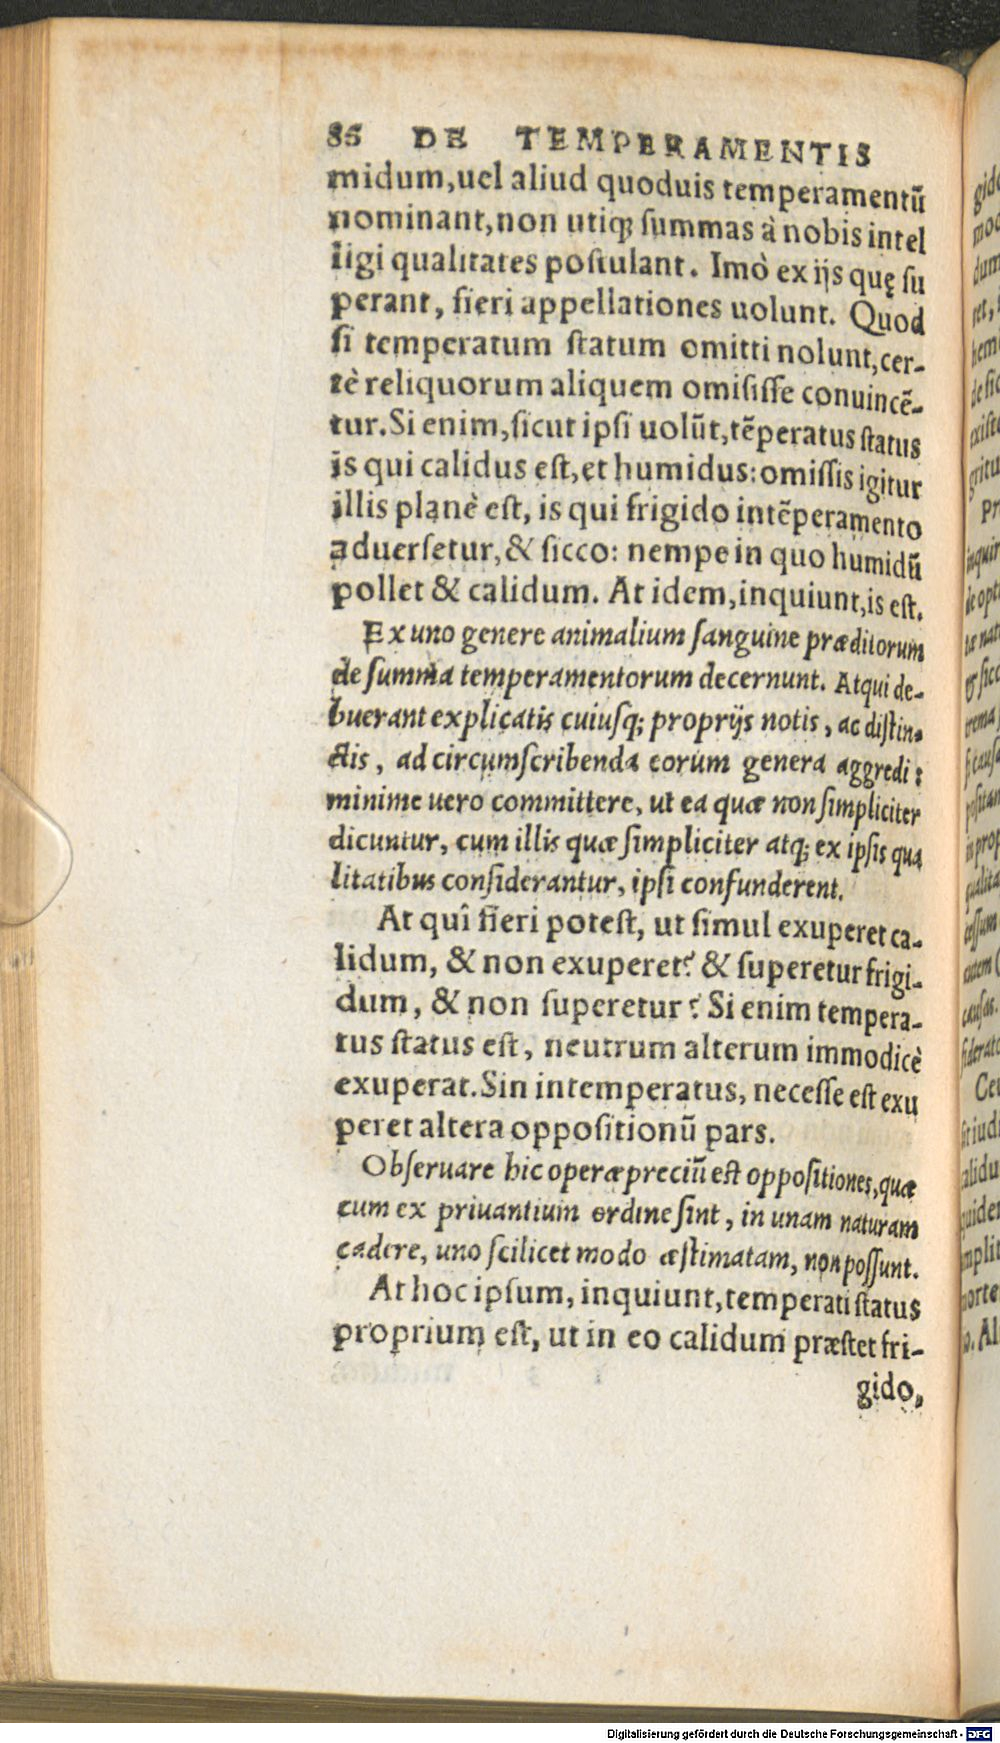 86 DE TEMPERAMENTIS
midum, uel aliud quoduis temperamentũ
nominant, non utiqꝫ ſummas à nobis intel
ligi qualitates poſtulant. Imò ex ijs quę ſu
perant, fieri appellationes uolunt. Quod
ſi temperatum ſtatum omitti nolunt, cer-
tè reliquorum aliquem omiſiſſe conuincẽ-
tur. Si enim, ſicut ipſi uolũt, tẽperatus ſtatus
is qui calidus eſt, et humidus: omiſſis igitur
illis planè eſt, is qui frigido intẽperamento
aduerſetur, & ſicco: nempe in quo humidũ
pollet & calidum. At idem, inquiunt, is eſt.
Ex uno genere animalium ſanguine præditorum
de ſumma temperamentorum decernunt. Atqui de-
buerant explicatis cuiuſqꝫ proprijs notis, ac diſtin-
ctis, ad circumſcribenda eorum genera aggredi:
minime uero committere, ut ea quæ non ſimpliciter
dicuntur, cum illis quæ ſimpliciter atqꝫ ex ipſis qua
litatibus conſiderantur, ipſi confunderent.
At quî fieri poteſt, ut ſimul exuperet ca-
lidum, & non exuperet? & ſuperetur frigi-
dum, & non ſuperetur? Si enim tempera-
tus ſtatus eſt, neutrum alterum immodicè
exuperat. Sin intemperatus, neceſſe eſt exu
peret altera oppoſitionũ pars.
Obſeruare hic operæpreciũ eſt oppoſitiones, quæ
cum ex priuantium ordine ſint, in unam naturam
cadere, uno ſcilicet modo æſtimatam, non poſſunt.
At hoc ipſum, inquiunt, temperati ſtatus
proprium eſt, ut in eo calidum præſtet fri-
gido,
Digitalisierung gefördert durch die Deutsche Forschungsgemeinschaft - DFG